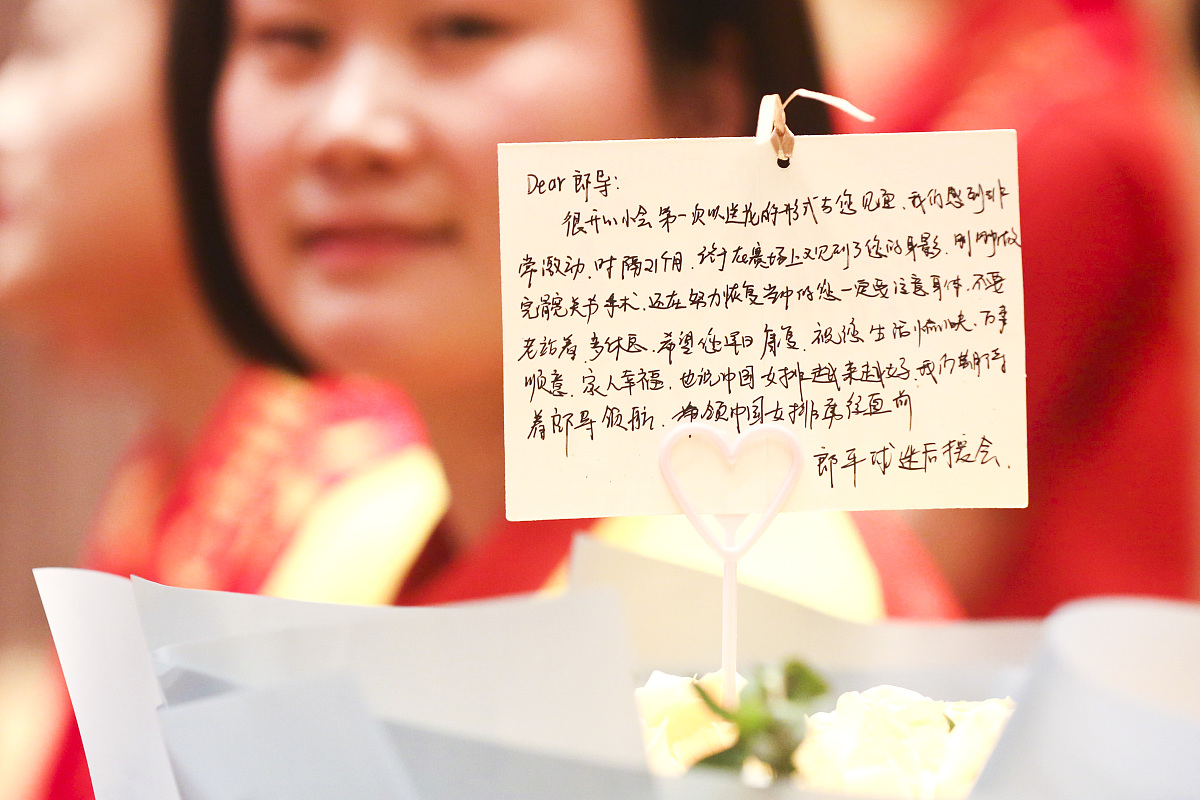 Dear 郎导:
很开心小会第一次以送花的形式与您见面、我们感到非
常激动.时隔21个月.终于在赛场上又见到了您的身影.刚刚做
完髋关节手术.还在努力恢复当中的您一定要注意身体.不要
老站着.多休息.希望您早日康复.祝您生活愉快.万事
顺意.家人幸福.也祝中国女排越来越好.我们期待
着郎导领航.带领中国女排勇往直前
郎平球迷后援会.